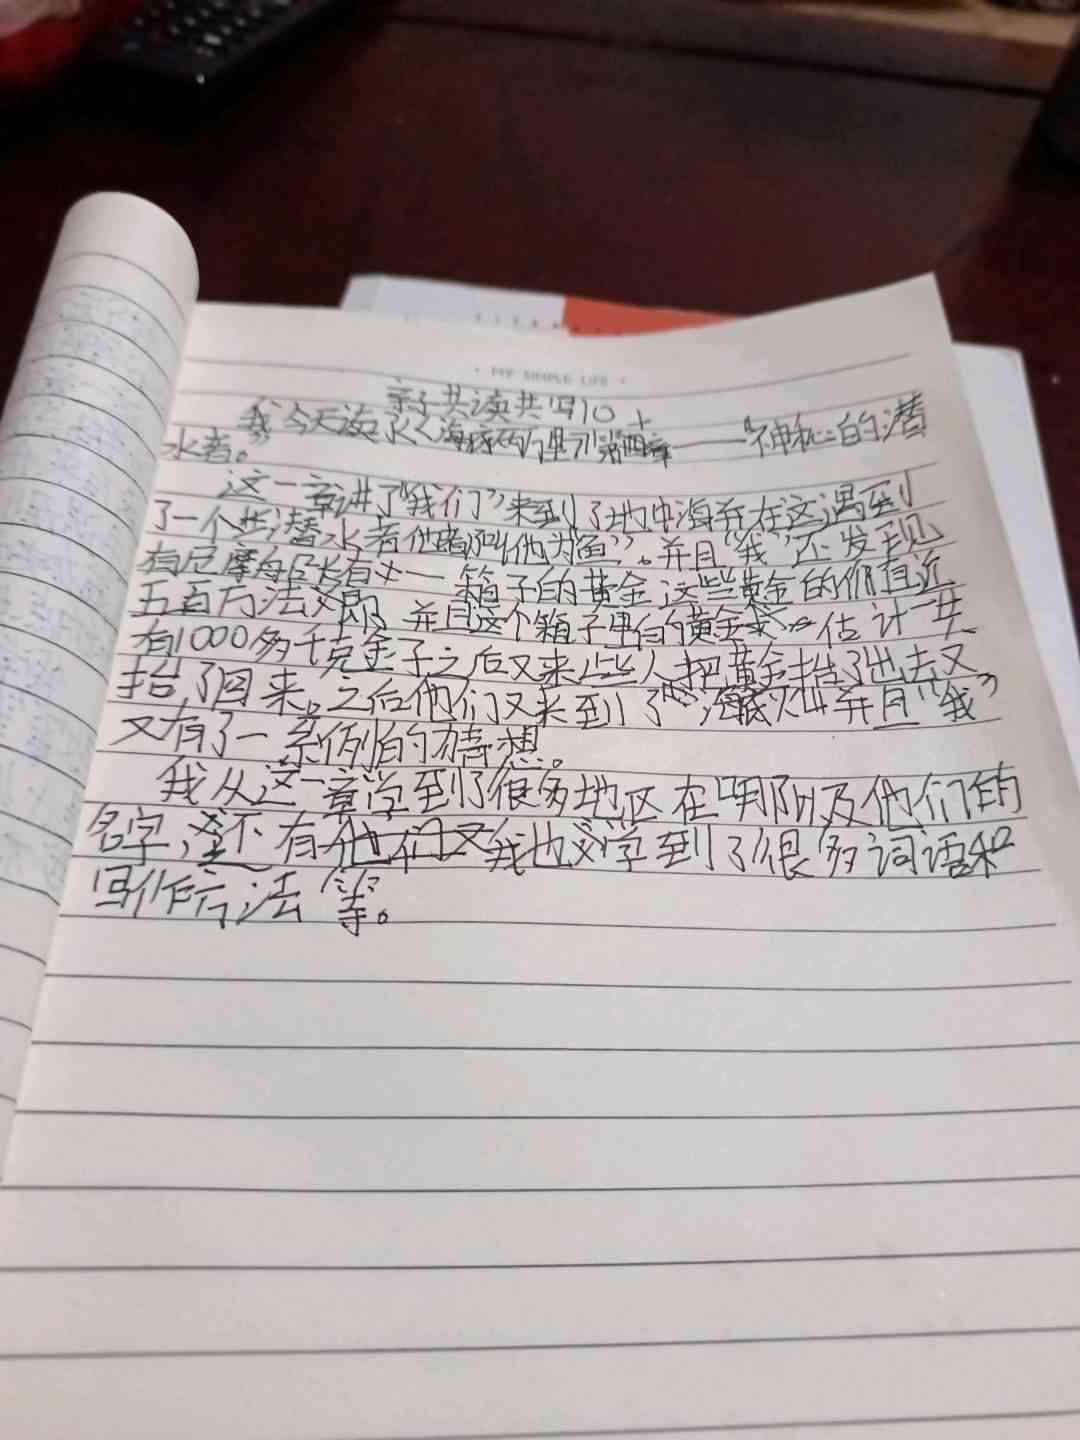 MY SIMPLE LIFE
亲子共读共写10
我今天读了《海底两万里》第四十章——“神秘的潜
水者。”
这一章讲了“我们”来到了地中海并在这遇到
了一个些潜水者他 叫他为鱼”。并且“我”还发现
尼摩船长有 一箱子的黄金这些黄金的价值近
五百万法 并且这个箱子里的黄金 估计一共
有1000多千克金子之后又来些人把黄金抬了出去又
抬了回来。之后他们又来到了“海底火山并且“我”
又有了一系例的猜想。
我从这一章学到了很多地区在 及他们的
名字,还有他们又我也学到了很多词语和
写作方法等。